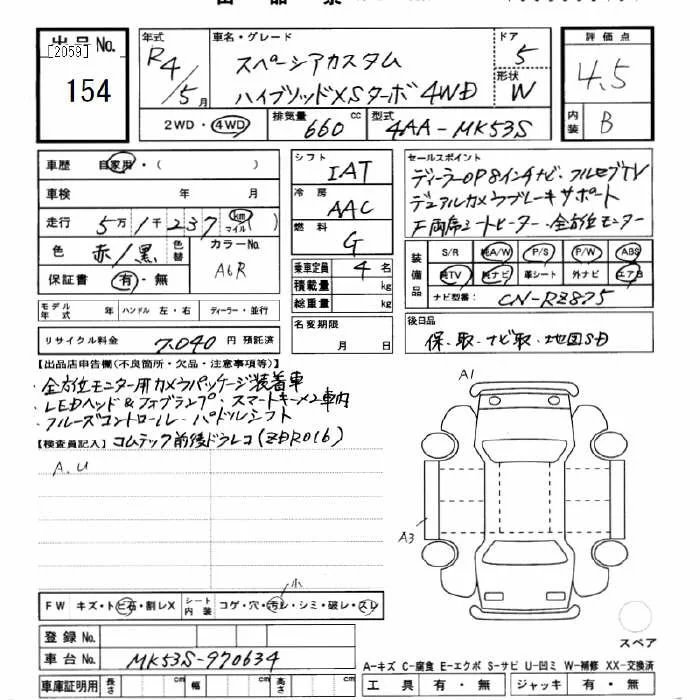 出品No.
[2059]
154
年式
R4/5月
車名・グレード
スペーシアカスタム
ハイブリッドXSターボ4WD
ドア
5
形状
W
評価点
4.5
内装
B
2WD・4WD
排気量 660 cc
型式 4AA-MK53S
車歴 自家用・( )
車検 年 月
走行 5万1千237 km マイル ( )
色 赤/黒 色替
カラーNo. A6R
保証書 有・無
シフト IAT
冷房 AAC
燃料 G
乗車定員 4名
積載量 kg
総重量 kg
セールスポイント
ディーラーOP8インチナビ・フルセグTV
デュアルカメラブレーキサポート
正両席シートヒーター・全方位モニター
装備品
S/R 純A/W P/S P/W ABS
純TV 純ナビ 革シート 外ナビ エアB
ナビ型番: CN-RZ875
モデル年式 年 ハンドル 左・右 ディーラー・並行
名変期限
月 日
後日品
保・取・ナビ取・地図SD
リサイクル料金 7,040 円 預託済
【出品店申告欄(不良箇所・欠品・注意事項等)】
・全方位モニター用カメラパッケージ装着車
・LEDヘッド&フォグランプ・スマートキーメン2車内
・クルーズコントロール・パドルシフト
【検査員記入】コムテック前後ドラレコ(ZDR016)
A.U
A1
A3
小
FW キズ・トビ石・割レX
シート内装 コゲ・穴・汚レ・シミ・破レ・スレ
スペア
登録No.
車台No. MK53S-970634
A-キズ C-腐食 E-エクボ S-サビ U-凹ミ W-補修 XX-交換済
車庫証明用 長さ cm 幅 cm 高さ cm
工具 有・無 ジャッキ 有・無